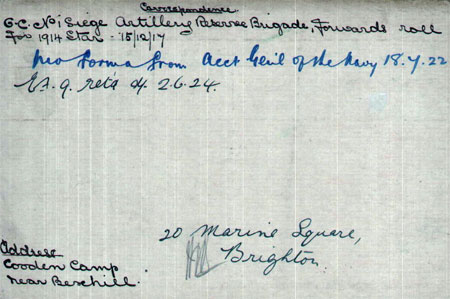 Correspondence
G.C. No 1 Siege Artillery Reserve Brigade, Forwards roll
For 1914 Star - 15/12/17
pro forma from Acct Genl of the Navy 18.7.22
ret'd d/ 2.6.24.
20 Marine Square,
Brighton.
Address
Cooden Camp
near Bexhill.